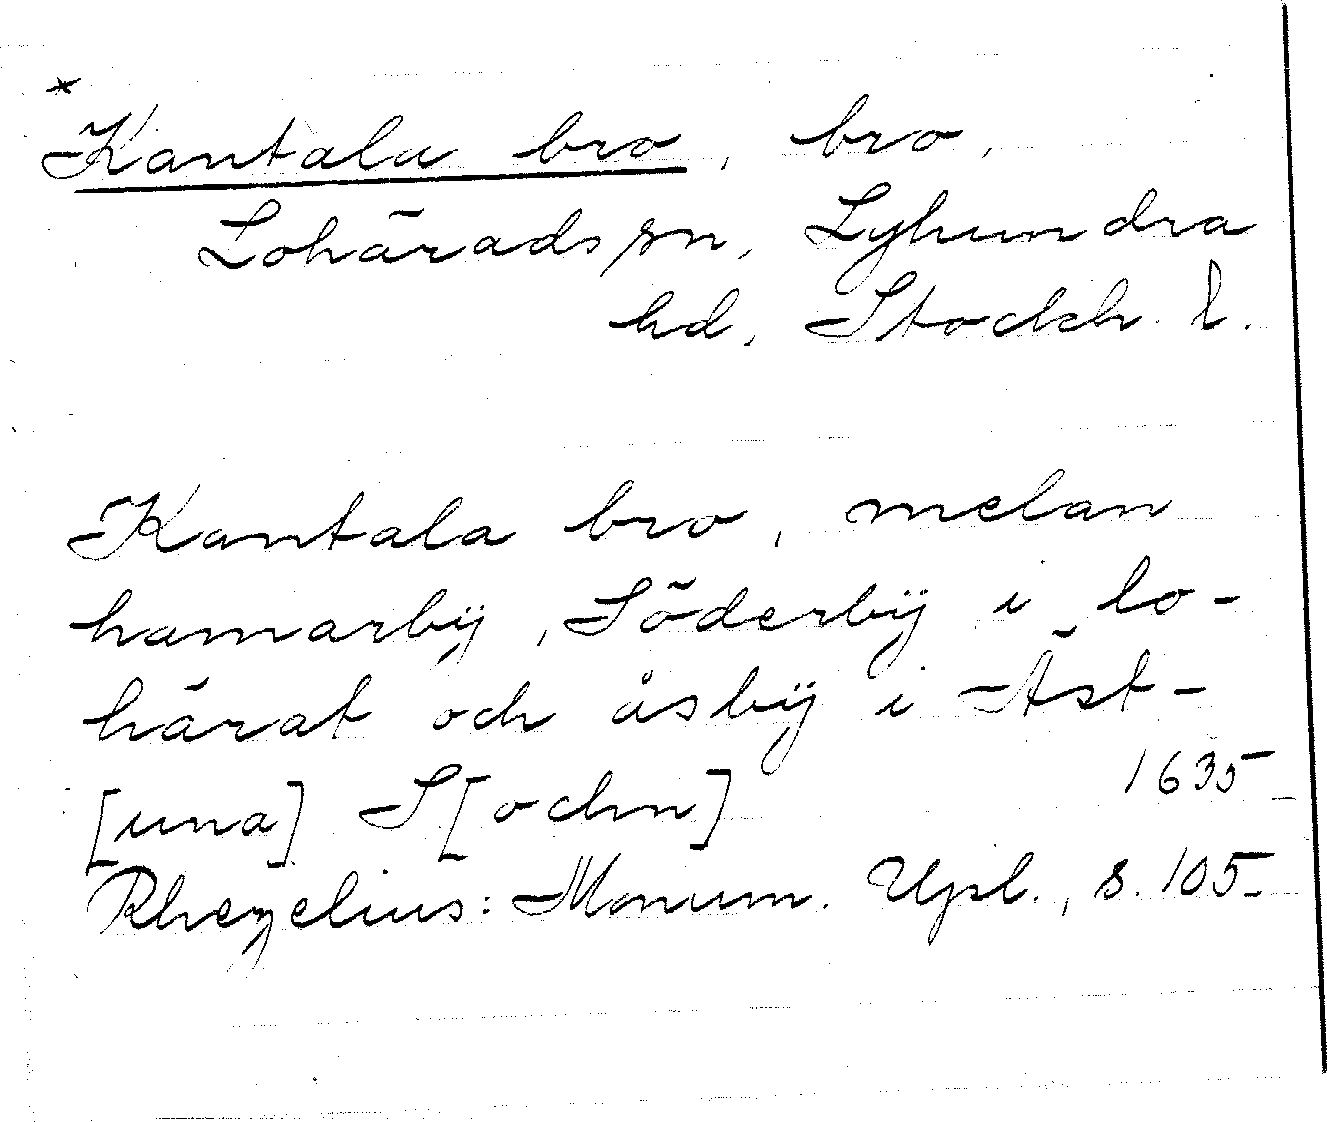 *
Kantala bro, bro,
Lohärads sn, Lyhundra
hd, Stockh. l.
Kantala bro, melan
hamarbÿ, Söderbÿ i lo-
härat och åsbÿ i Äst-
[una] S[ochn] 1635
Rhezelius: Monum. Upl., s. 105.